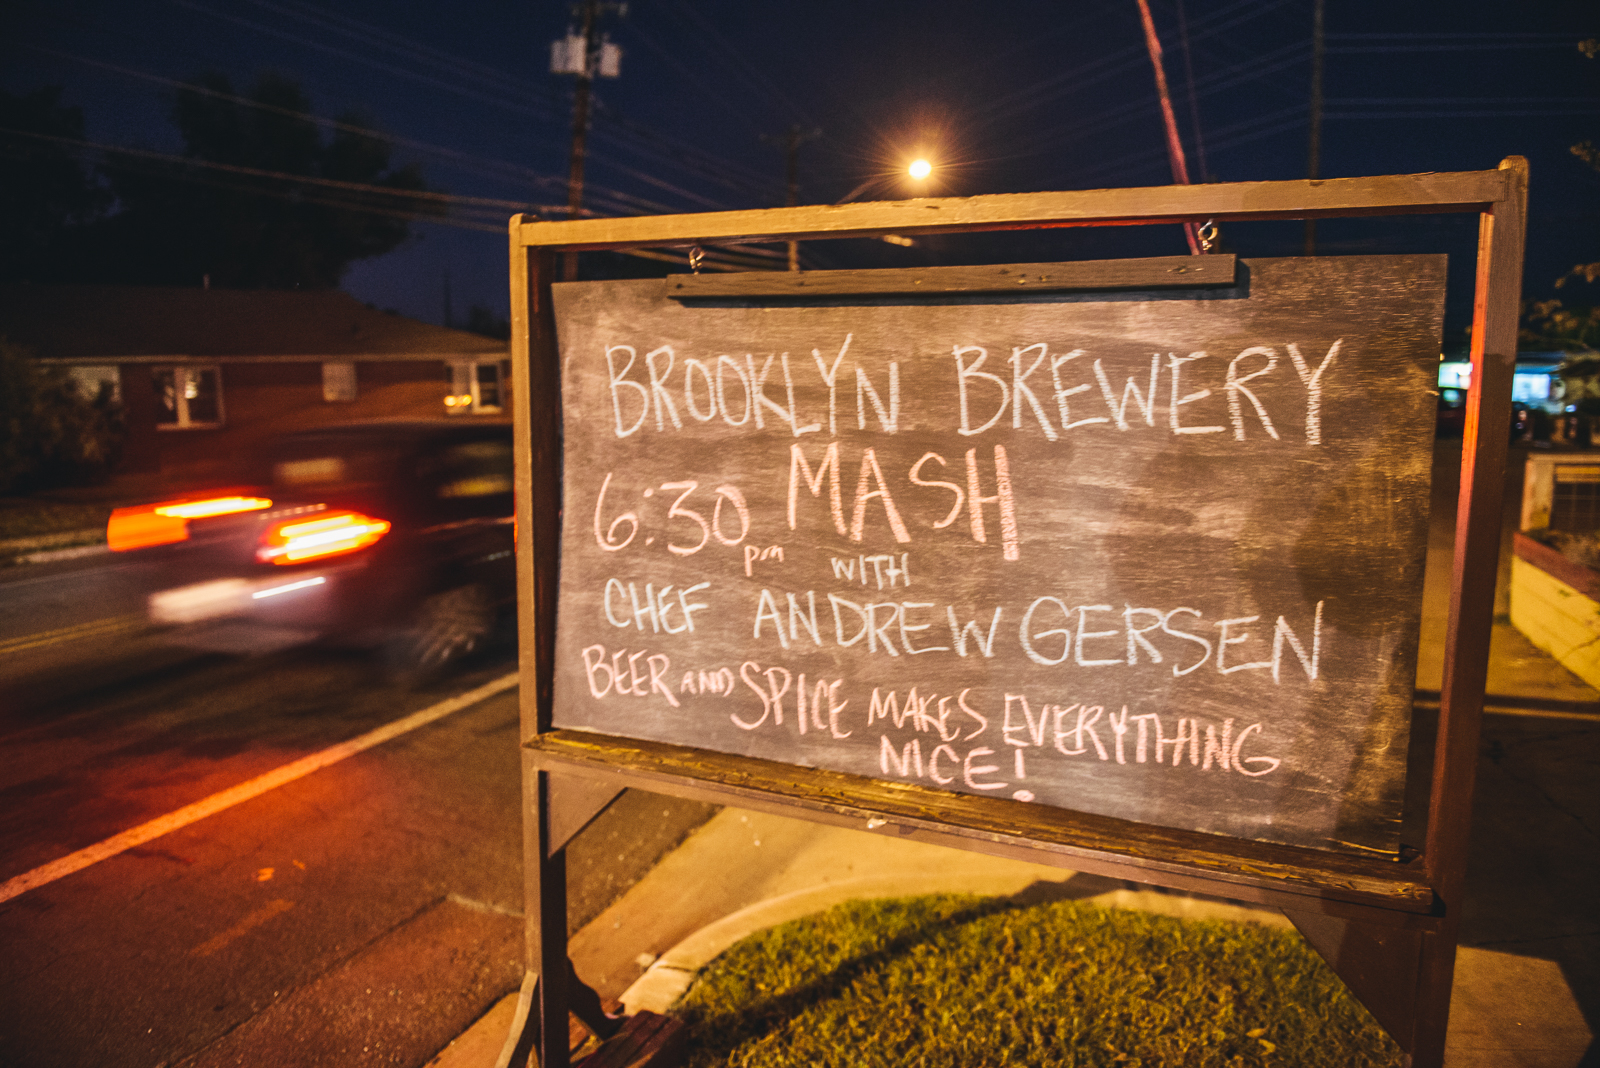 BROOKLYN BREWERY
6:30 pm MASH
WITH
CHEF ANDREW GERSEN
BEER AND SPICE MAKES EVERYTHING
NICE!